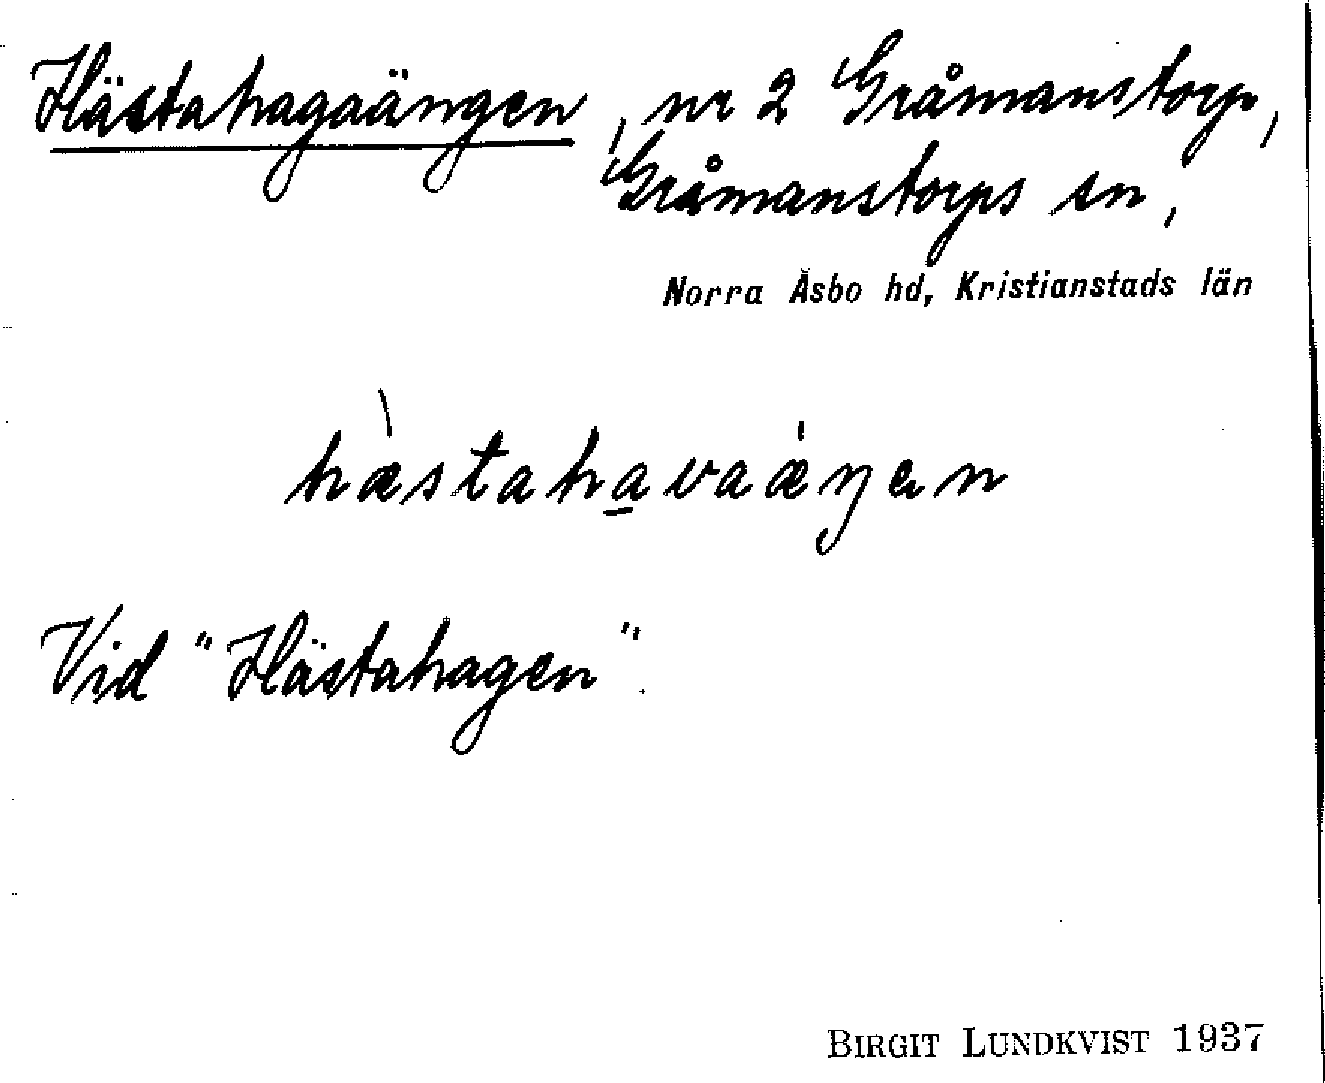 Hästahagaängen, nr 2 Gråmanstorp,
Gråmanstorps sn,
Norra Åsbo hd, Kristianstads län
hæ̀staha̲vaæ̀ŋen
Vid "Hästahagen".
BIRGIT LUNDKVIST 1937